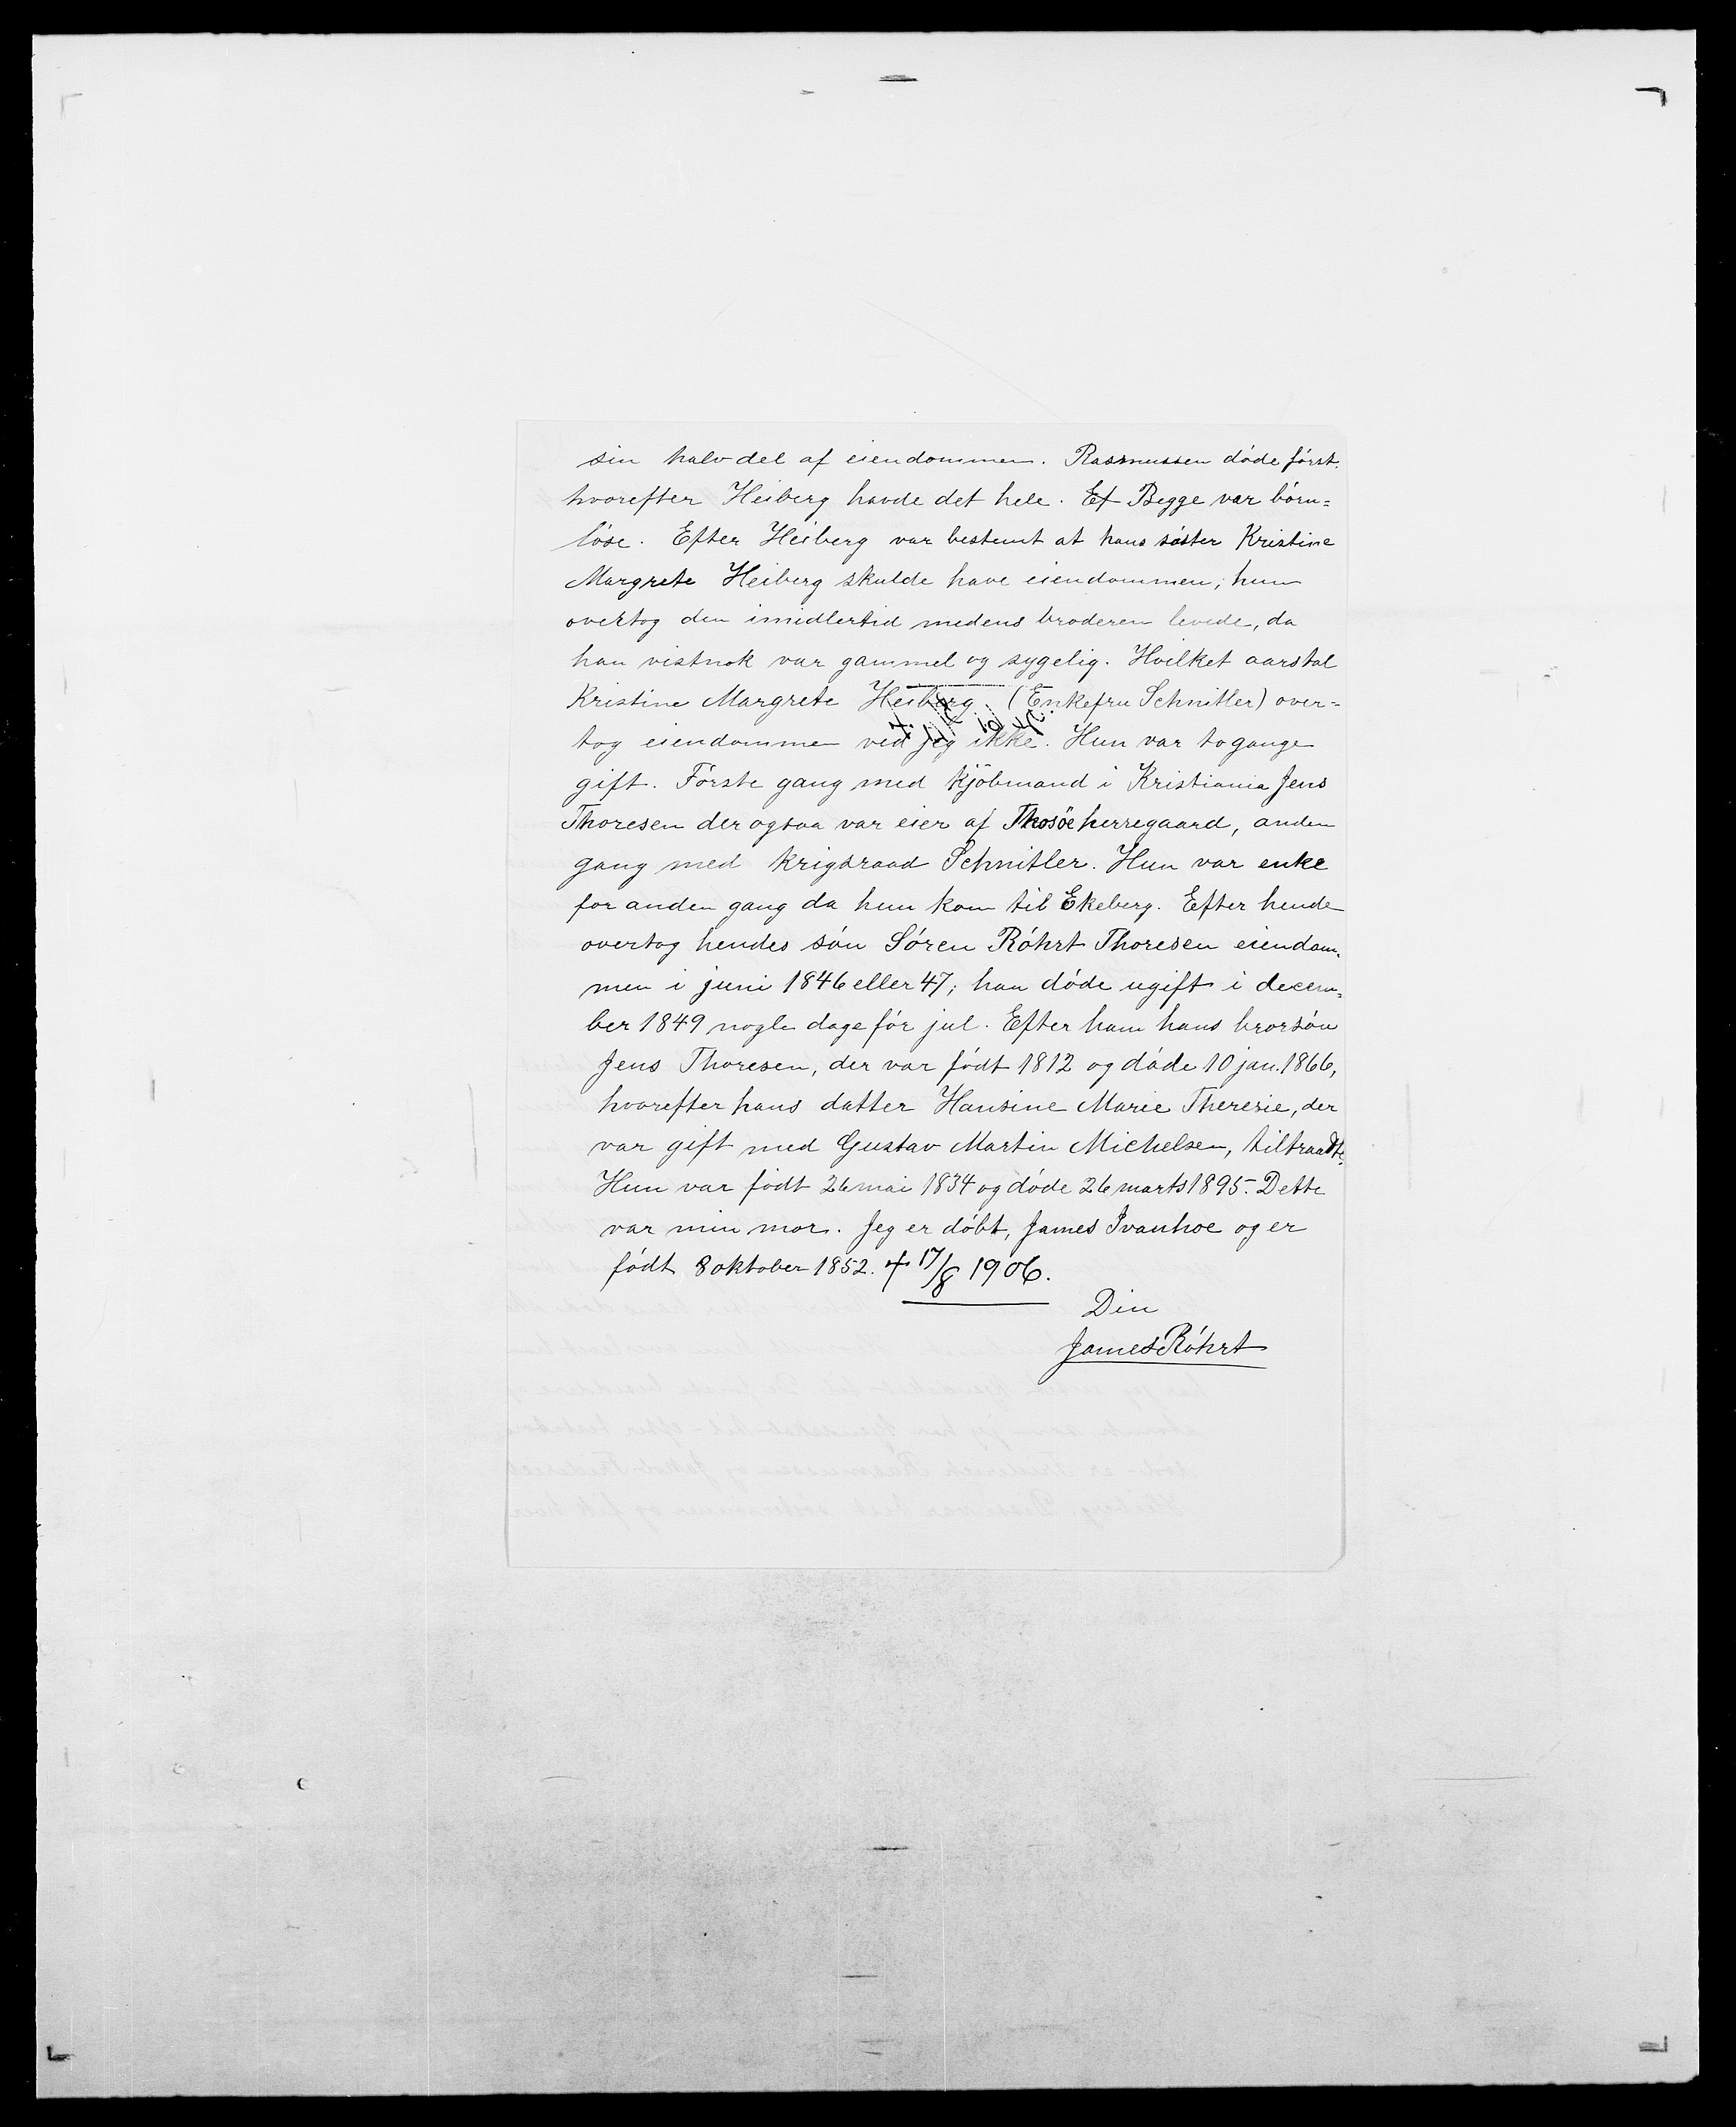 sin halvdel af eiendommen. Rasmussen döde först.
hvorefter Heiberg havde det hele. Ef Begge var börn=
löse. Efter Heiberg var bestemt at hans söster Kristine
Margrete Heiberg skulde have eiendommen; hun
overtog den imidlertid medens broderen levede, da
han vistnok var gammel og sygelig. Hvilket aarstal
Kristine Margrete Heiberg (Enkefru Schnitler) over=
tog eiendommen ved jeg ikke. Hun var to gange
gift. Förste gang med kjöbmand i Kristiania Jens
Thoresen der ogsaa var eier af Thosöe herregaard, anden
gang med krigsraad Schnitler. Hun var enke
for anden gang da hun kom til Ekeberg. Efter hende
overtog hendes sön Sören Röhrt Thoresen eiendom=
men i juni 1846 eller 47; han döde ugift i decem=
ber 1849 nogle dage för jul. Efter ham hans brorsön
Jens Thoresen, der var födt 1812 og döde 10 jan. 1866,
hvorefter hans datter Hansine Marie Theresie, der
var gift med Gustav Martin Michelsen, tiltraadte.
Hun var födt 26 mai 1834 og döde 26 marts 1895. Dette
var min mor. Jeg er döbt, James Ivanhoe og er
födt 8 oktober 1852. † 17/8 1906.
Din
James Röhrt